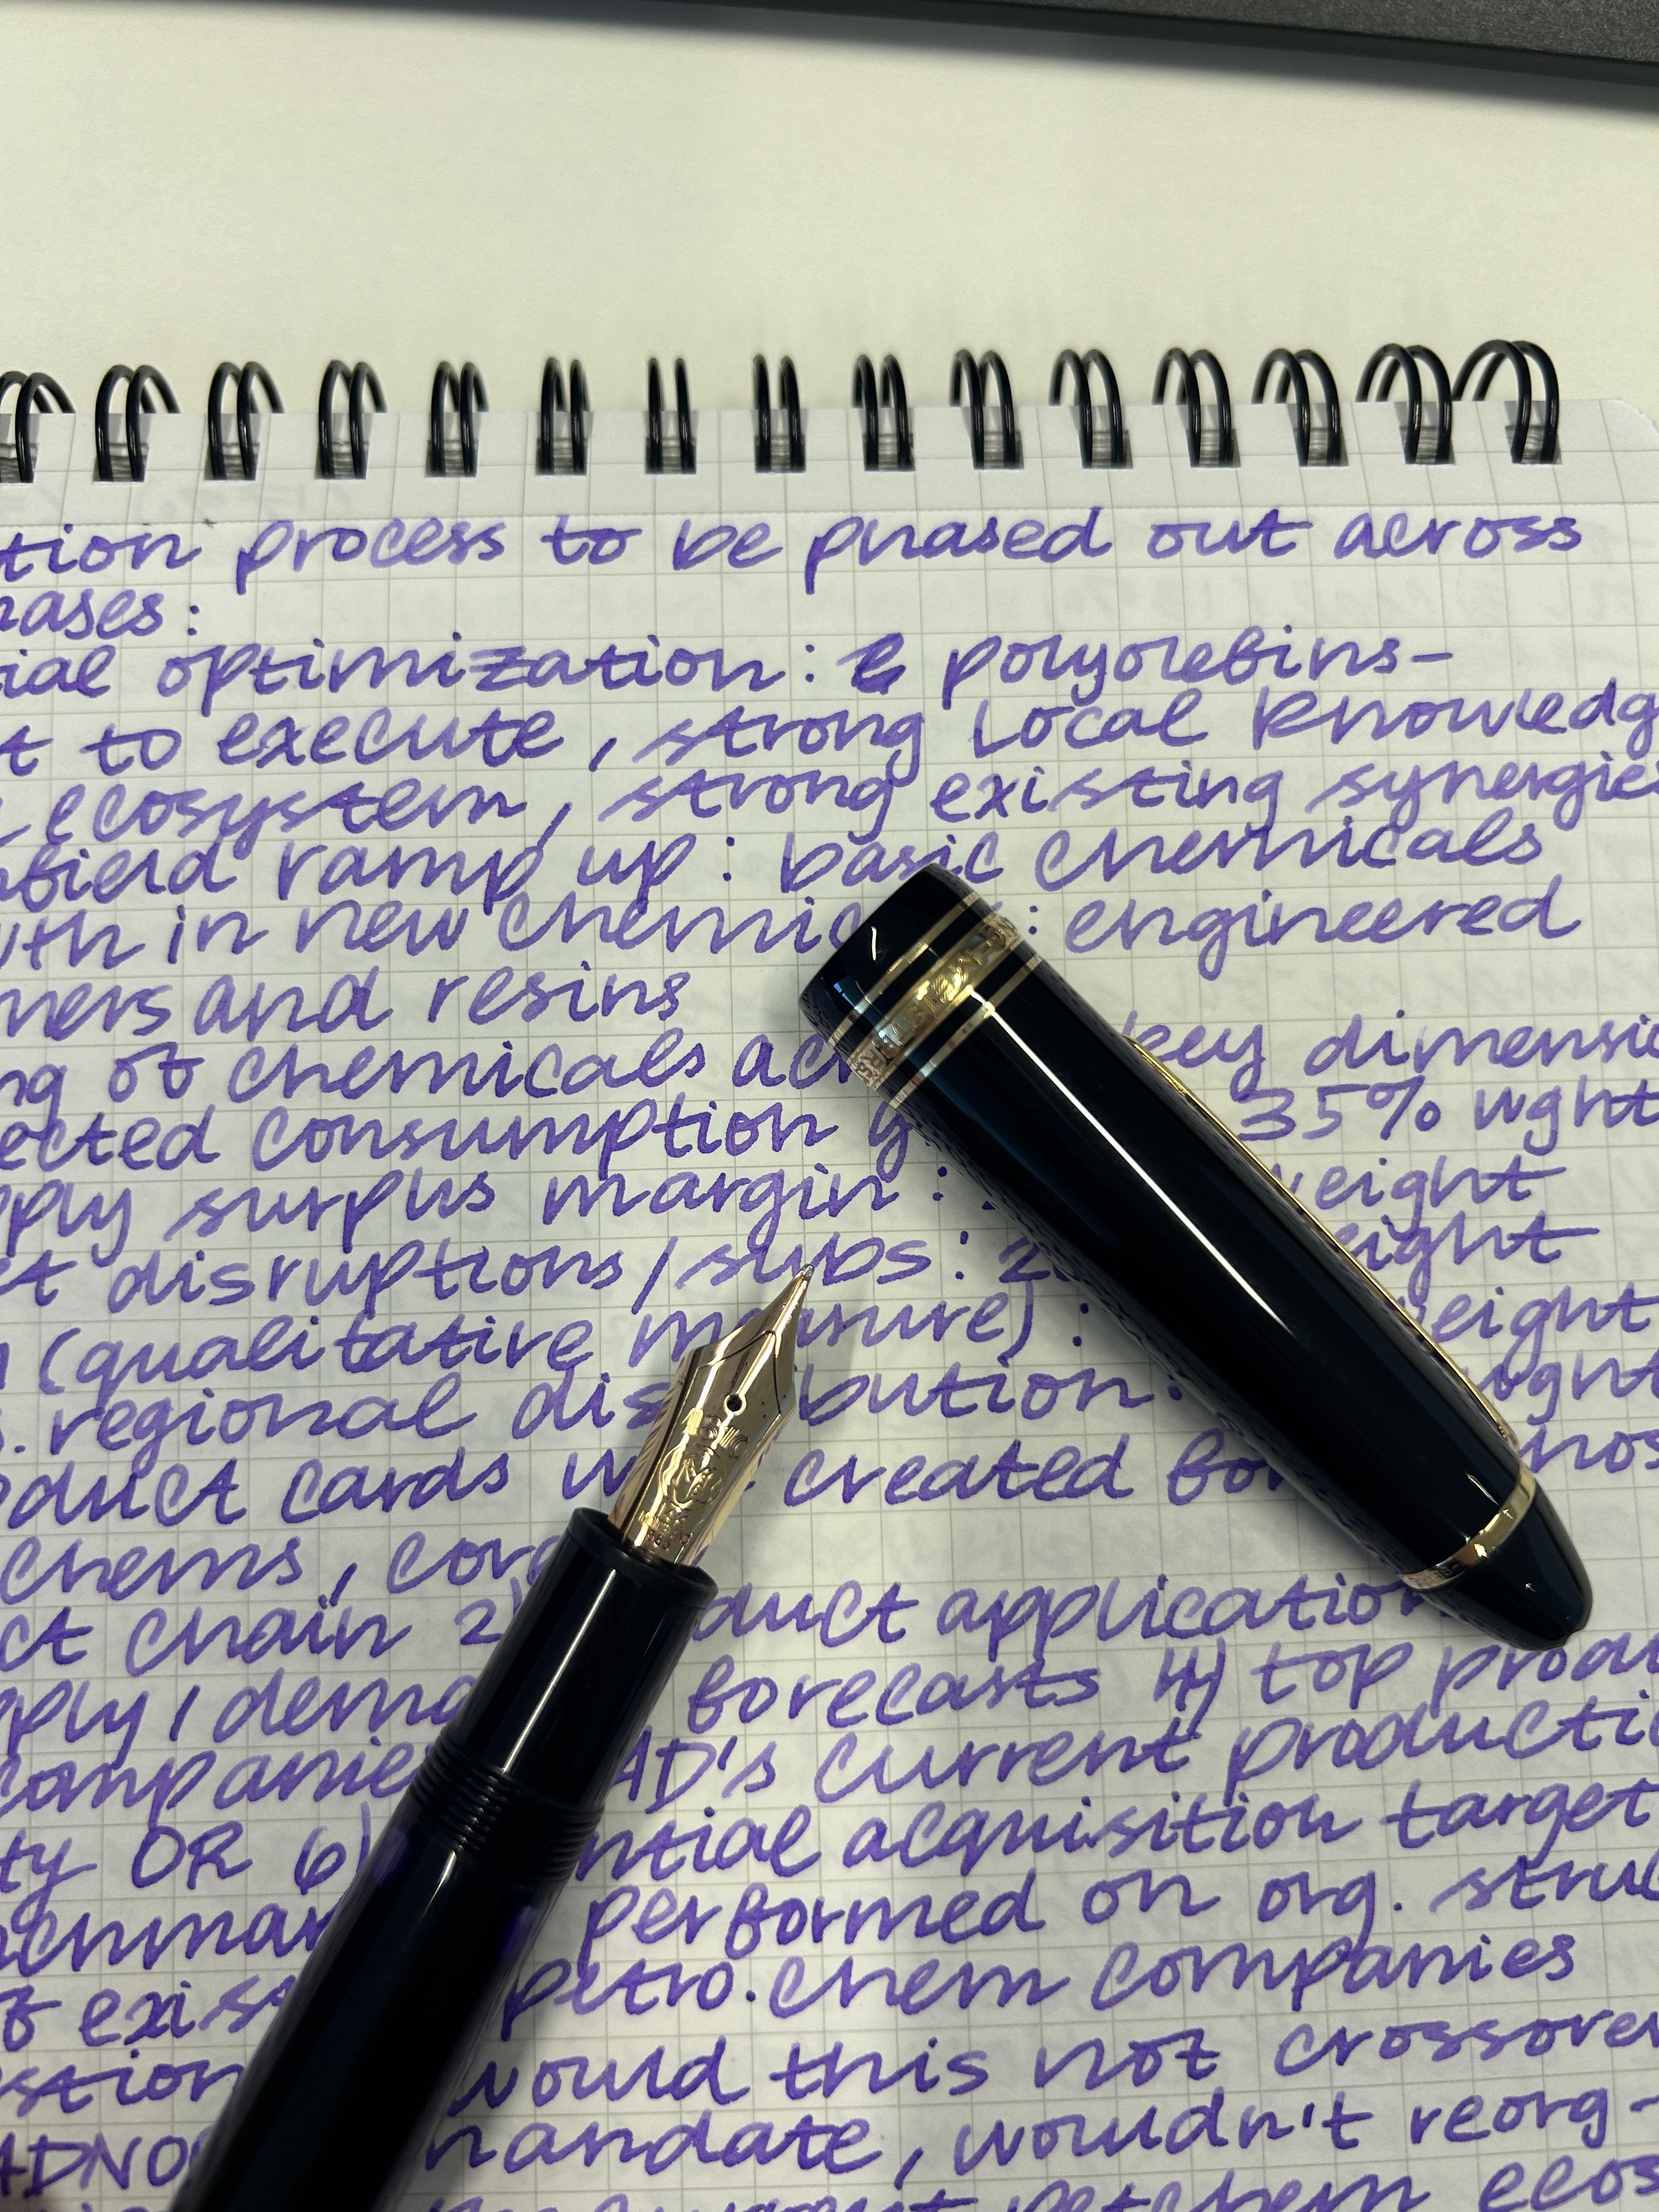 tion process to be phased out across
hases:
ial optimization: polyolefins-
t to execute, strong local knowledg
ecosystem, strong existing synergies
nfield ramp up: basic chemicals
wth in new chemic : engineered
mers and resins
ng of chemicals ac key dimensio
ected consumption g 35% wght
pply surplus margin: weight
ct disruptions/subs: 2 eight
(qualitative measure): weight
s. regional dis bution: wght
oduct cards w created for hos
chems, cor
ct chain 2) duct application
pply/dema forecasts 4) top produ
companie AD's current producti
ty OR 6) ntial acquisition target
nchmar performed on org. struc
of exis petro.chem companies
estion would this not crossover
ADNO mandate, wouldn't reorg-
petchem ecos